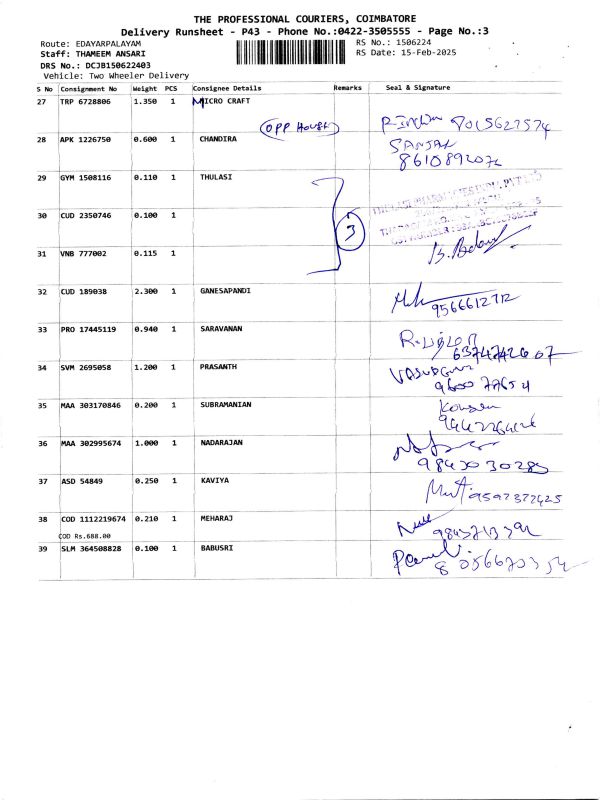 THE PROFESSIONAL COURIERS, COIMBATORE
Delivery Runsheet - P43 - Phone No.:0422-3505555 - Page No.:3
Route: EDAYARPALAYAM RS No.: 1506224
Staff: THAMEEM ANSARI RS Date: 15-Feb-2025
DRS No.: DCJB150622403
Vehicle: Two Wheeler Delivery
S No Consignment No Weight PCS Consignee Details Remarks Seal & Signature
27 TRP 6728806 1.350 1 MICRO CRAFT
OPP House
28 APK 1226750 0.600 1 CHANDIRA SANJAY
8610892076
29 GYM 1508116 0.110 1 THULASI
30 CUD 2350746 0.100 1 3
31 VNB 777002 0.115 1
32 CUD 189038 2.300 1 GANESAPANDI
9566612712
33 PRO 17445119 0.940 1 SARAVANAN
6374742607
34 SVM 2695058 1.200 1 PRASANTH
35 MAA 303170846 0.200 1 SUBRAMANIAN
36 MAA 302995674 1.000 1 NADARAJAN
9843030289
37 ASD 54849 0.250 1 KAVIYA
9597377425
38 COD 1112219674 0.210 1 MEHARAJ
COD Rs.688.00
39 SLM 364508828 0.100 1 BABUSRI